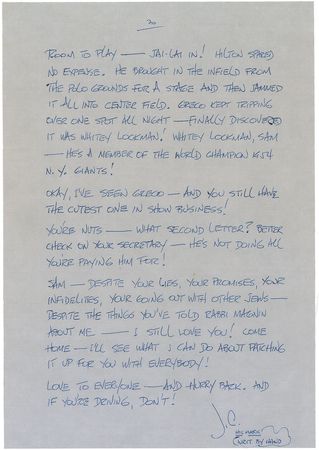 20
ROOM TO PLAY — JAI-LAI IN! HILTON SPARED
NO EXPENSE. HE BROUGHT IN THE INFIELD FROM
THE POLO GROUNDS FOR A STAGE AND THEN JAMMED
IT ALL INTO CENTER FIELD. GRECO KEPT TRIPPING
OVER ONE SPOT ALL NIGHT — FINALLY DISCOVERED
IT WAS WHITEY LOCKMAN! WHITEY LOCKMAN, SAM
— HE'S A MEMBER OF THE WORLD CHAMPION 1954
N.Y. GIANTS!
OKAY, I'VE SEEN GRECO — AND YOU STILL HAVE
THE CUTEST ONE IN SHOW BUSINESS!
YOU'RE NUTS — WHAT SECOND LETTER? BETTER
CHECK ON YOUR SECRETARY — HE'S NOT DOING ALL
YOU'RE PAYING HIM FOR!
SAM — DESPITE YOUR LIES, YOUR PROMISES, YOUR
INFIDELITES, YOUR GOING OUT WITH OTHER JEWS —
DESPITE THE THINGS YOU'VE TOLD RABBI MAGNIN
ABOUT ME — I STILL LOVE YOU! COME
HOME — I'LL SEE WHAT I CAN DO ABOUT PATCHING
IT UP FOR YOU WITH EVERYBODY!
LOVE TO EVERYONE — AND HURRY BACK. AND
IF YOU'RE DRIVING, DON'T!
J.C.
HIS MARK
(WRIT BY HAND)